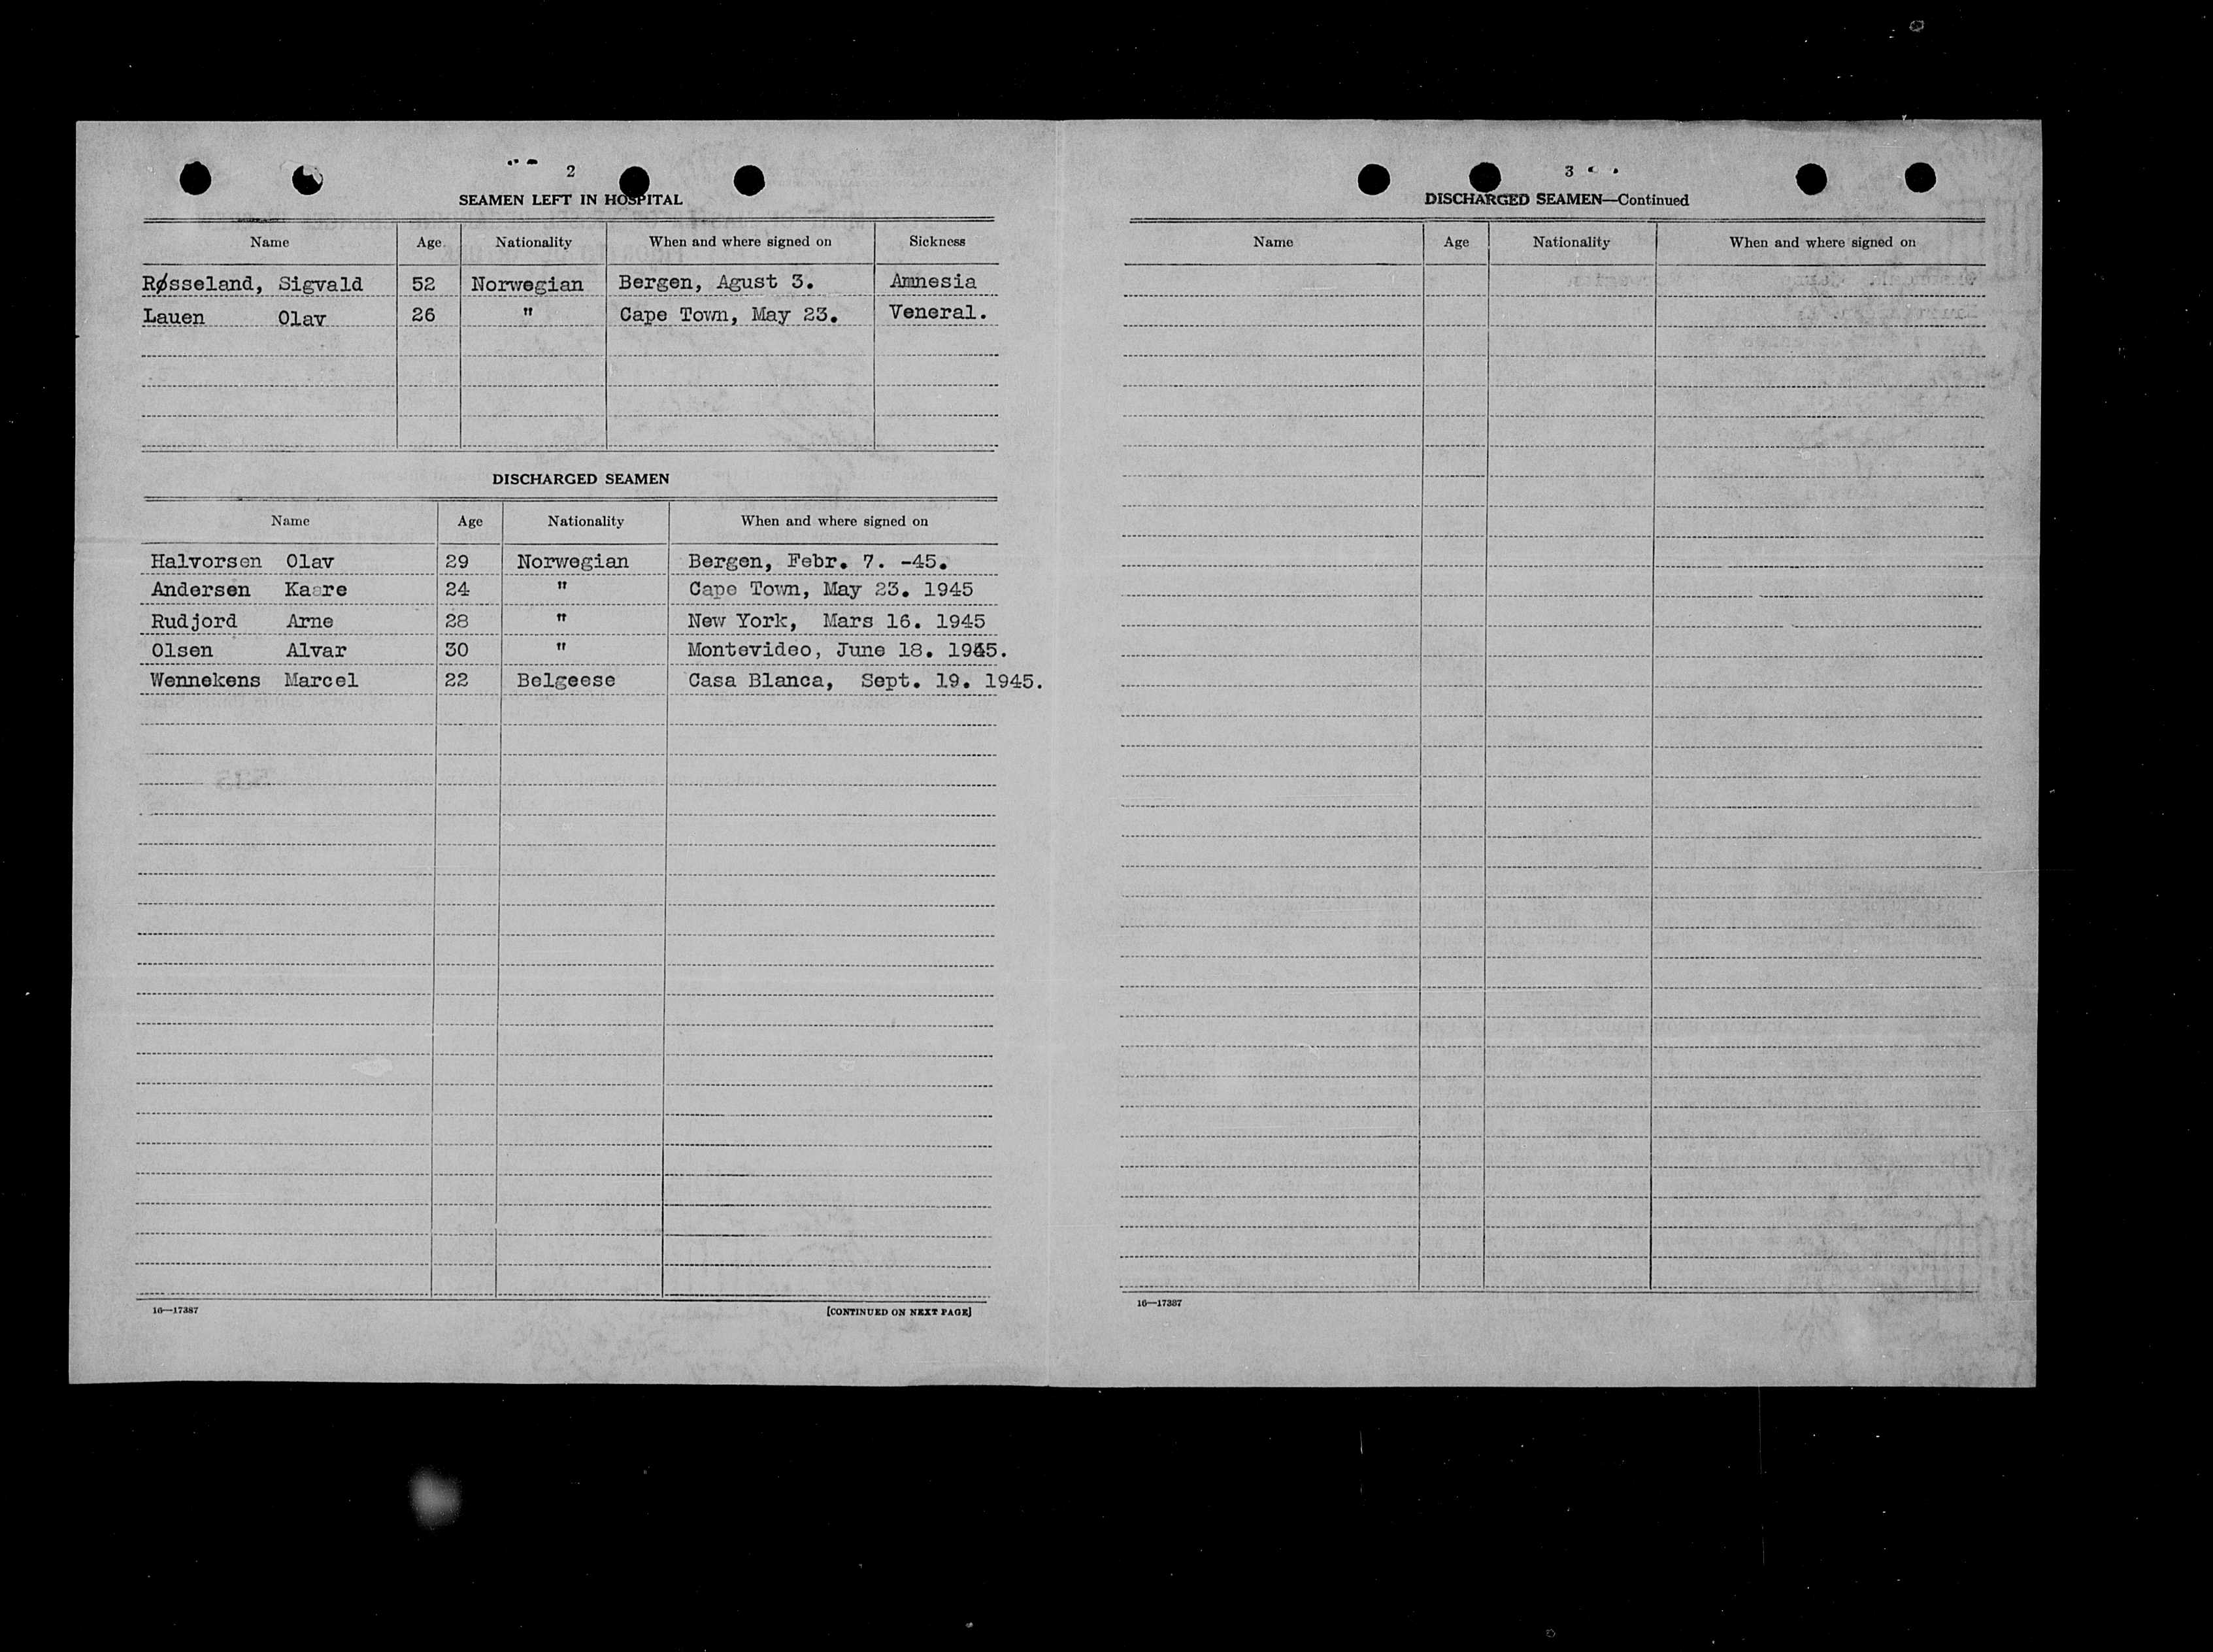 2
SEAMEN LEFT IN HOSPITAL
Name Age Nationality When and where signed on Sickness
Røsseland, Sigvald 52 Norwegian Bergen, Agust 3. Amnesia
Lauen Olav 26 " Cape Town, May 23. Veneral.
DISCHARGED SEAMEN
Name Age Nationality When and where signed on
Halvorsen Olav 29 Norwegian Bergen, Febr. 7. -45.
Andersen Kaare 24 " Cape Town, May 23. 1945
Rudjord Arne 28 " New York, Mars 16. 1945
Olsen Alvar 30 " Montevideo, June 18. 1945.
Wennekens Marcel 22 Belgeese Casa Blanca, Sept. 19. 1945.
16—17387 [CONTINUED ON NEXT PAGE]
3
DISCHARGED SEAMEN—Continued
Name Age Nationality When and where signed on
16—17387